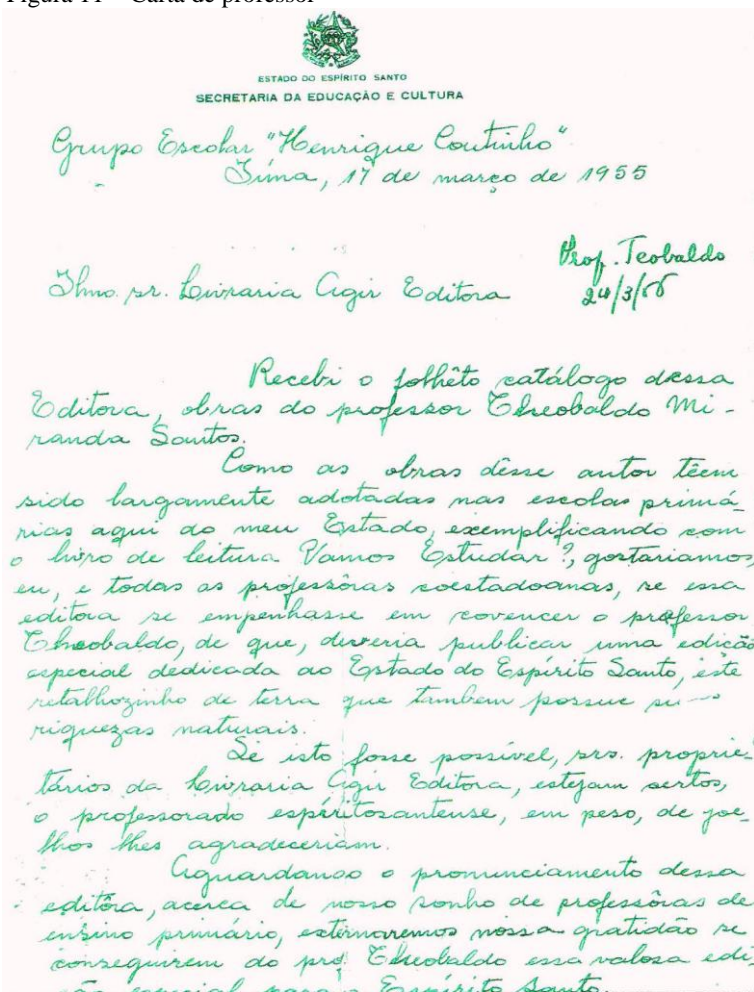 Figura 11 – Carta de professor
ESTADO DO ESPÍRITO SANTO
SECRETARIA DA EDUCAÇÃO E CULTURA
Grupo Escolar "Henrique Coutinho"
Iúna, 17 de março de 1955
Prof. Teobaldo
Ilmo. sr. Livraria Agir Editora
24/3/55
Recebi o folhêto catálogo dessa
Editora, obras do professor Theobaldo Mi-
randa Santos.
Como as obras dêsse autor têem
sido largamente adotadas nas escolas primá-
rias aqui do meu Estado, exemplificando com
o livro de leitura Vamos Estudar?, gostariamos,
eu, e todas as professôras coestadoanas, se essa
editora se empenhasse em covencer o professor
Theobaldo, de que, deveria publicar uma edição
especial dedicada ao Estado do Espírito Santo, êste
retalhozinho de terra que tambem possue su
riquezas naturais.
Se isto fosse possível, srs. proprie-
tários da Livraria Agir Editora, estejam certos,
o professorado espíritosantense, em peso, de joe-
lhos lhes agradeceriam.
Aguardando o pronunciamento dessa
editôra, acerca de nosso sonho de professôras de
ensino primário, externaremos nossa gratidão se
conseguirem do prof. Theobaldo essa valosa edi-
ção especial para o Espírito Santo.